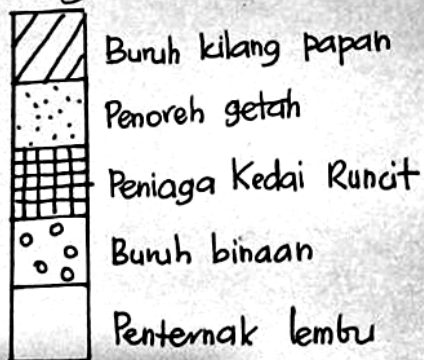 Buruh kilang papan
Penoreh getah
Peniaga Kedai Runcit
Buruh binaan
Penternak lembu